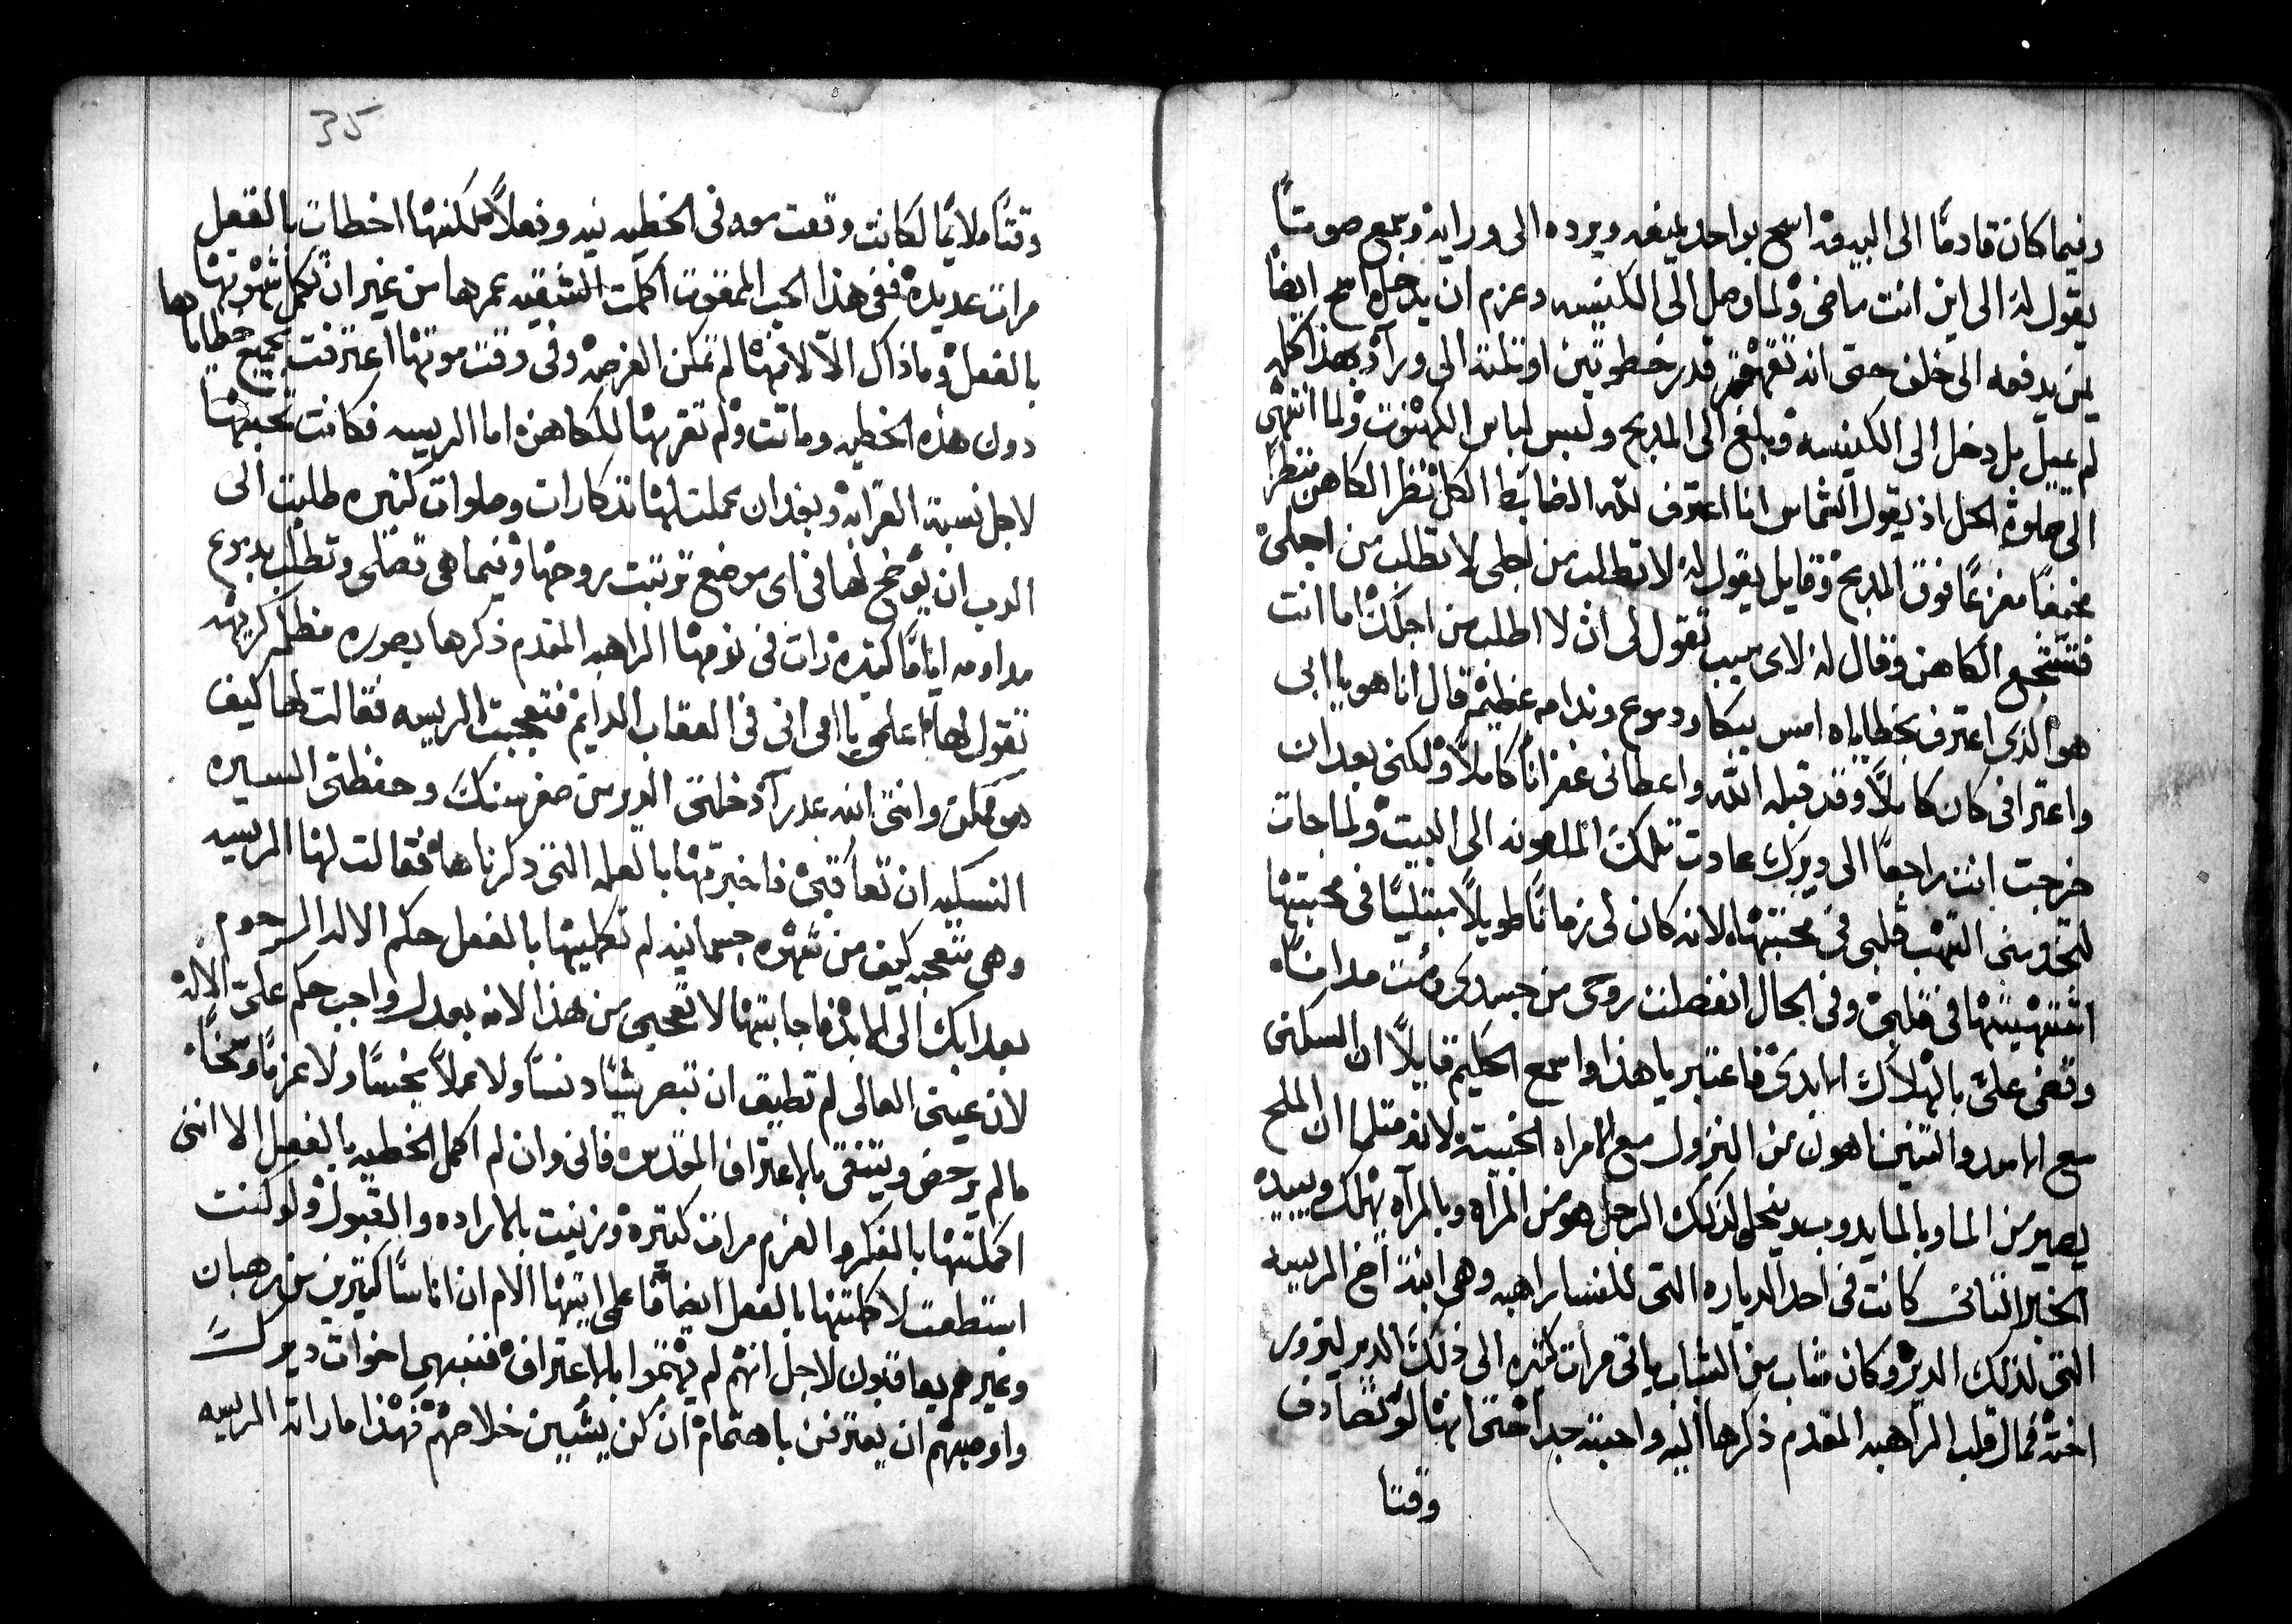 وفيما كان قادمًا الى البيعه اسمع بواحد يمنعه ويرده الى ورايه وسمع صوتًا
يقول له الى اين انت ماضى ولما وصل الى الكنيسه وعزم ان يدخل اسمع ايضًا
من يدفعه الى خلف حتى انه تقهقر قدر خطوتين او ثلثه الى ورآ وبهذا كله
لم يميل بل دخل الى الكنيسه وبلغ الى المدبح ولبس لباس الكهنوت ولما انتهى
الى صلوة الحل اذ يقول الشماس انا اعترف لله الضابط الكل نظر الكاهن منظرًا
مخيفًا مفزعًا فوق المدبح وقايل يقول له لا تطلب من اجلى لا تطلب من اجلى
فتشجع الكاهن وقال له لاى سبب تقول لى ان لا اطلب من اجلك اما انت
هو الذى اعترف بخطاياه امس ببكا ودموع وندامه عظيمه قال انا هو يا ابى
واعترافى كان كاملاً وقد قبله الله واعطانى غفرانًا كاملاً ولكنى بعد ان
خرجت انت راجعًا الى ديرك عادت تلك الملعونه الى البيت ولما جات
لتخدمنى التهب قلبى فى محبتها لانه كان لى زمانًا طويلاً مبتليًا فى محبتها
اشتهيتها فى قلبى وفى الحال انفصلت روحى من جسدى ومت مدانًا
وقضى علىّ بالهلاك الابدى فاعتبر يا هذا واسمع الحكيم قايلاً ان السكنى
مع الاسد والتنين اهون من النزول مع الامراه الخبيثة لانه مثلما ان الملح
يصير من الما وبالما يدوب وينحل كذلك الرجل هو من المرآه وبالمرآه يهلك ويبيد
الخبر الثانى كانت فى احد الدياره التى للنسا راهبه وهى ابنة اخ الرييسه
التى لذلك الدير وكان شاب من الشباب ياتى مرات كثيره الى ذلك الدير ليزور
اخته فمال قلب الراهبه المقدم ذكرها اليه واحبته جدا حتى انها لو تصادف
وقتا
35
وقتًا ملايمًا لكانت وقعت معه فى الخطيه نيه وفعلاً لكنها اخطات بالفعل
مرات عديده ففى هذا الحب الممقوت اكملت الشقيه عمرها من غير ان تكمل شهوتها
بالفعل وما ذاك الّا لانها لم تمكن الفرصه وفى وقت موتها اعترفت بجميع خطاياها
دون هذه الخطيه وماتت ولم تقر بها للكاهن اما الرييسه فكانت تحبها
لاجل نسبة القرابه وبعد ان عملت لها تذكارات وصلوات كثيره طلبت الى
الرب ان يوضح لها فى اى موضع ترتبت روحها وفيما هى تصلى وتطلب بدموع
مداومه ايامًا كثيره رات فى نومها الراهبه المقدم ذكرها بصوره مظلمه كريهه
تقول لها اعلمى يا امى انى فى العقاب الدايم فتعجبت الرييسه فقالت لها كيف
هو ممكن وانتى ابنه عدرآ دخلتى الدير من صغر سنك وحفظتى السيره
النسكيه ان تعاقبى فاخبرتها بالعله التى ذكرناها فقالت لها الرييسه
وهى متعجبه كيف من شهوه جسمانيه لم تكمليها بالفعل حكم الاله الرحوم
بعدابك الى الابد فاجابتها لا تعجبى من هذا لانه بعدل واجب حكم علىّ الاله
لان عينى العالى لم تطيق ان تبصر شيًا دنسًا ولا عملاً نجسًا ولا عزمًا وسخًا
ما لم يرحض ويتنقى بالاعتراف المقدس فانى وان لم اكمل الخطيه بالفعل الا اننى
اكملتها بالفكر والعزم مرات كثيره وزنيت بالاراده والقبول ولو كنت
استطعت لاكملتها بالفعل ايضًا فاعلمى ايتها الام ان اناسًا كثيرين من رهبان
وغيرهم يعاقبون لاجل انهم لم يهتموا بالاعتراف فنبهى اخوات ديرك
واوصيهم ان يعترفن باهتمام ان كن يشيين خلاصهم فهذا ما راته الرييسه